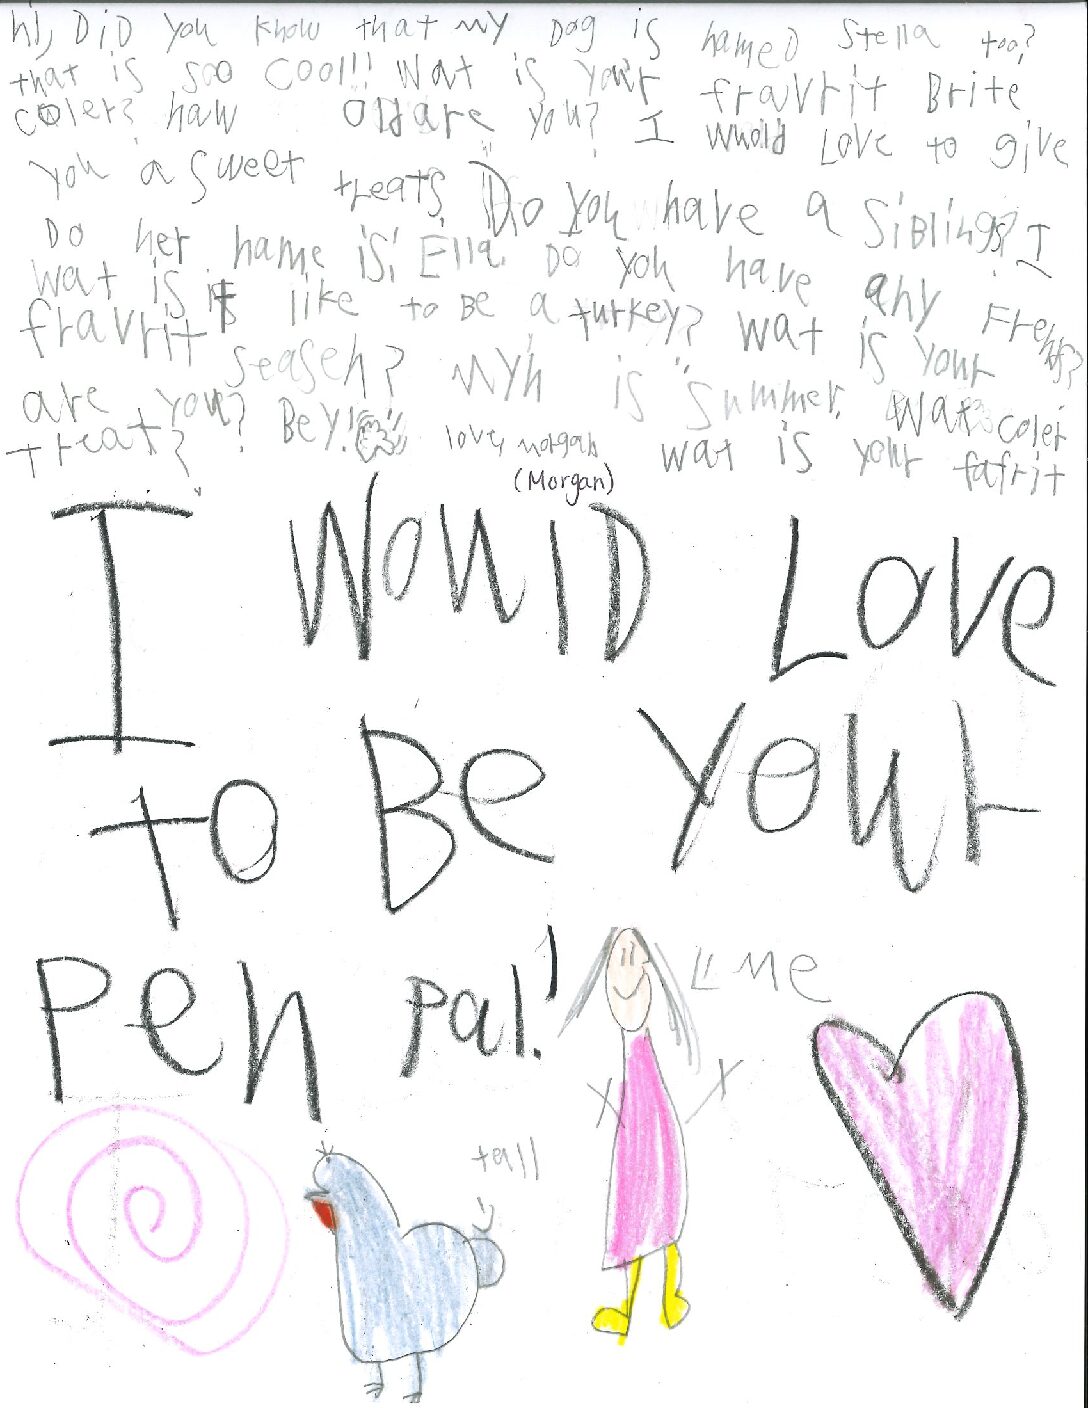 hi, DiD you know that my Dog is named Stella too?
that is soo cool!! Wat is your fravrit Brite
coler? haw old are you? I Would Love to give
you a sweet treats. Do you have a SiBlings? I
Do her name is; Ella. Do you have any Frends?
wat is it like to BE a turkey? wat is your
fravrit seasen? myn is "summer. Wat coler
are you? BEY! love, morgan wat is your fafrit
treat?
(Morgan)
I WoulD Love
to Be your
Pen pal!
me
tall